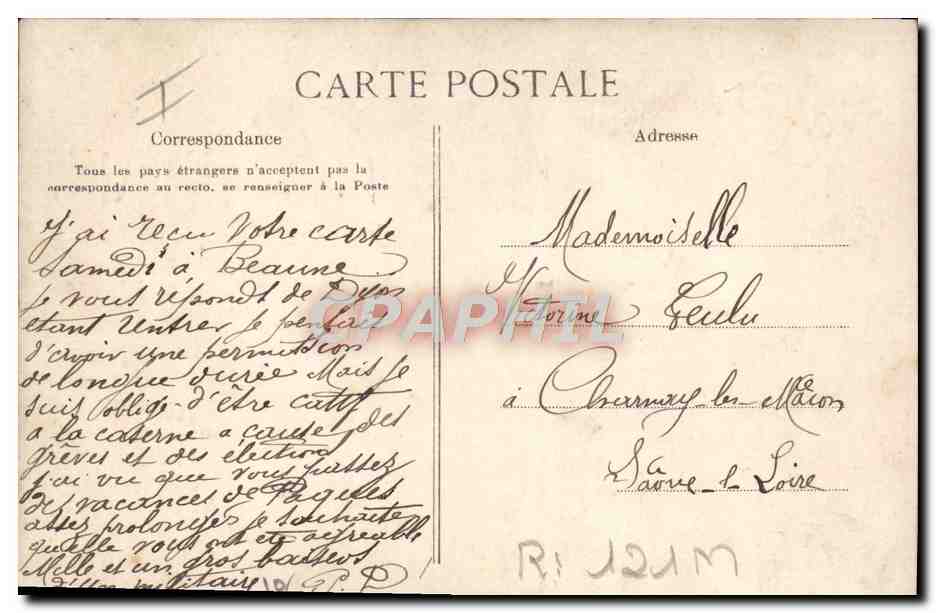 CARTE POSTALE
Correspondance
Tous les pays étrangers n'acceptent pas la
correspondance au recto, se renseigner à la Poste
J'ai reçu Votre carte
samedi à Beaune
je vous répondt de Dyon
etant rentrer je penssait
d'avoir une permission
de longue durée Mais je
suis oblige d'être
a la caserne a cause des
grèves et des élection
j'ai vu que vous passez
des vacances de Pagues
assez prolonges je souhaite
qu'elle vous ont ete agreable
Mille et un gros baisers
militaire
Adresse
Mademoiselle
Victorine Teulu
à Charnay-les-Mâcon
Saône-l-Loire
R: 121M
CPAPHIL